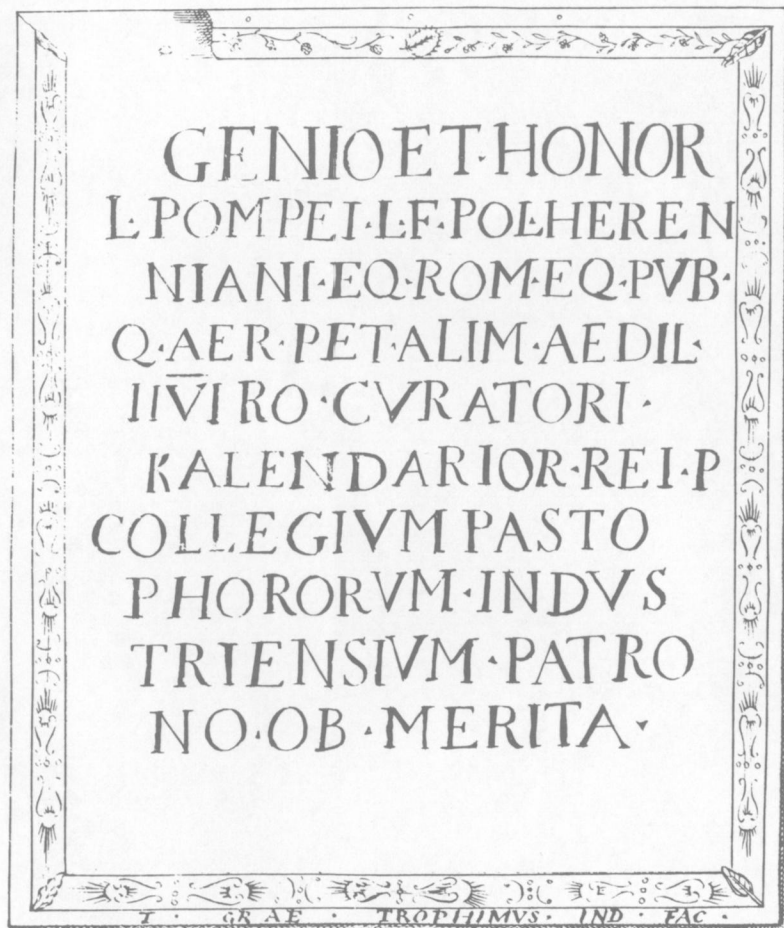 GENIO ET·HONOR
L·POMPEI·L·F·POL·HEREN
NIANI·EQ·ROM·EQ·PVB·
Q·AER·PET·ALIM·AEDIL·
IIVIRO·CVRATORI·
KALENDARIOR·REI·P
COLLEGIVM PASTO
PHORORVM·INDVS
TRIENSIVM·PATRO
NO·OB·MERITA·
T · GRAE · TROPHIMVS · IND · FAC ·